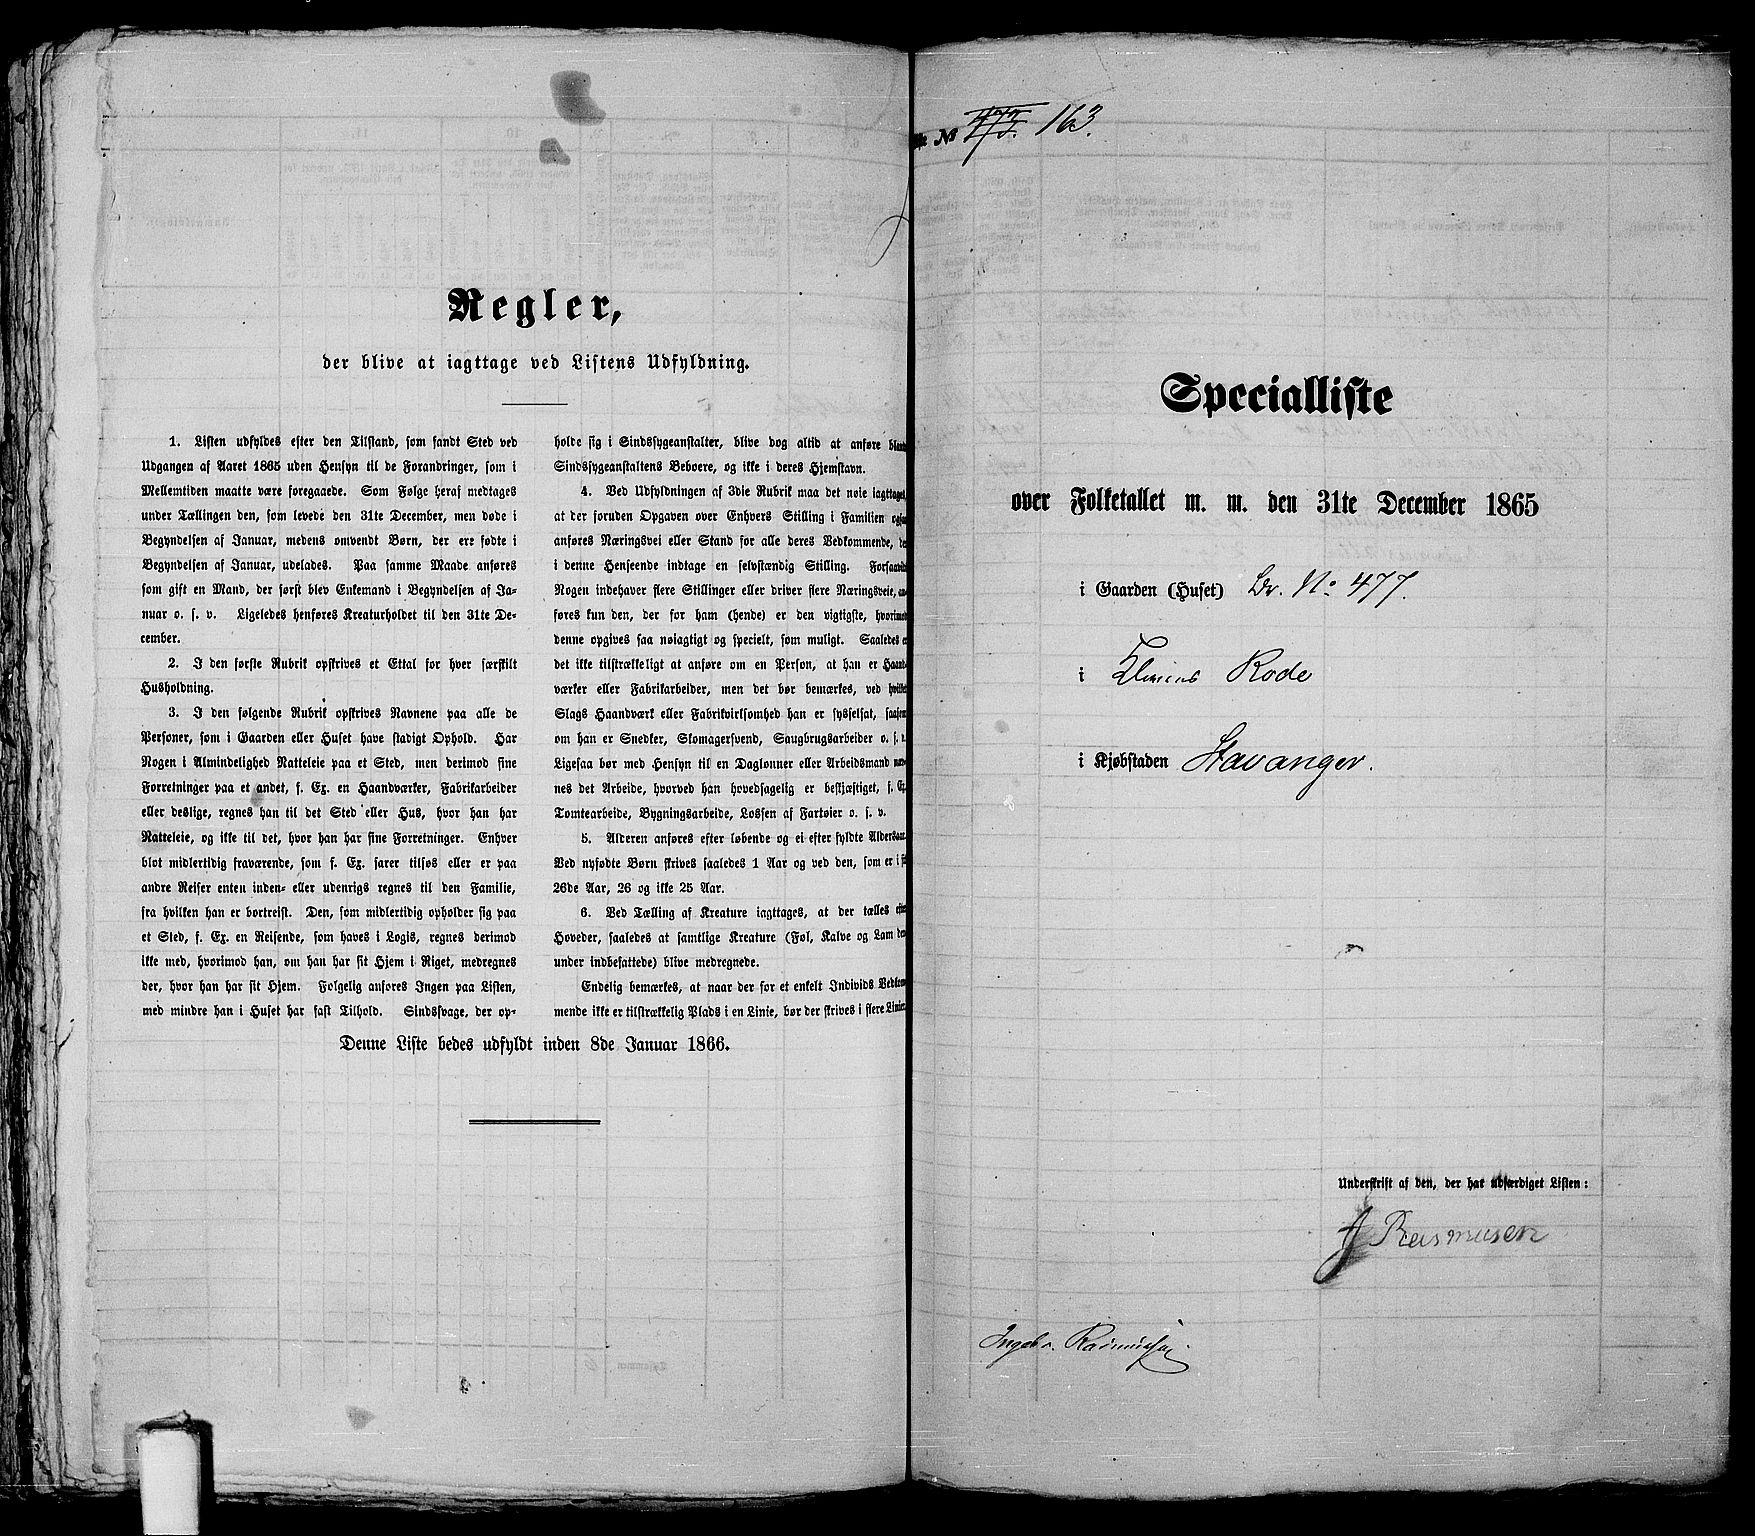 Regler,
der blive at iagttage ved Listens Udfyldning.
1. Listen udfyldes efter den Tilstand, som fandt Sted ved
Udgangen af Aaret 1865 uden Hensyn til de Forandringer, som i
Mellemtiden maatte være foregaaede. Som Følge heraf medtages
under Tællingen den, som levede den 31te December, men døde i
Begyndelsen af Januar, medens omvendt Børn, der ere fødte i
Begyndelsen af Januar, udelades. Paa samme Maade anføres
som gift en Mand, der først blev Enkemand i Begyndelsen af Ja-
nuar o. s. v. Ligeledes henføres Kreaturholdet til den 31te De-
cember.
2. I den første Rubrik opskrives et Ettal for hver særskilt
Husholdning.
3. I den følgende Rubrik opskrives Navnene paa alle de
Personer, som i Gaarden eller Huset have stadigt Ophold. Har
Nogen i Almindelighed Natteleie paa et Sted, men derimod sine
Forretninger paa et andet, f. Ex. en Haandværker, Fabrikarbeider
eller deslige, regnes han til det Sted eller Hus, hvor han har
Natteleie, og ikke til det, hvor han har sine Forretninger. Enhver
blot midlertidig fraværende, som f. Ex. farer tilsøs eller er paa
andre Reiser enten inden- eller udenrigs regnes til den Familie,
fra hvilken han er bortreist. Den, som midlertidig opholder sig paa
et Sted, f. Ex. en Reisende, som haves i Logis, regnes derimod
ikke med, hvorimod han, om han har sit Hjem i Riget, medregnes
der, hvor han har sit Hjem. Følgelig anføres Ingen paa Listen,
med mindre han i Huset har fast Tilhold. Sindssvage, der op-
holde sig i Sindssygeanstalter, blive dog altid at anføre blandt
Sindssygeanstaltens Beboere, og ikke i deres Hjemstavn.
4. Ved Udfyldningen af 3die Rubrik maa det nøie iagttages,
at der foruden Opgaven over Enhvers Stilling i Familien også
anføres Næringsvei eller Stand for alle deres Vedkommende, de
i denne Henseende indtage en selvstændig Stilling. Forsaavidt
Nogen indehaver flere Stillinger eller driver flere Næringsveie, an-
føres kun den, der for ham (hende) er den vigtigste, hvorimod
denne opgives saa nøiagtigt og specielt, som muligt. Saaledes er
det ikke tilstrækkeligt at anføre om en Person, at han er Haand-
værker eller Fabrikarbeider, men det bør bemærkes, ved hvilket
Slags Haandværk eller Fabrikvirksomhed han er sysselsat, saasom
om han er Snedker, Skomagersvend, Saugbrugsarbeider o. s. v.
Ligesaa bør med Hensyn til en Dagløner eller Arbeidsmand næv-
nes det Arbeide, hvorved han hovedsagelig er beskjæftiget, f. Ex.
Tomtearbeide, Bygningsarbeide, Lossen af Fartøier o. s. v.
5. Alderen anføres efter løbende og ei efter fyldte Aldersaar.
Ved nyfødte Børn skrives saaledes 1 Aar og ved den, som er i sit
26de Aar, 26 og ikke 25 Aar.
6. Ved Tælling af Kreature iagttages, at der tælles efter
Hoveder, saaledes at samtlige Kreature (Føl, Kalve og Lam der-
under indbefattede) blive medregnede.
Endelig bemærkes, at naar der for et enkelt Individs Vedkom-
mende ikke er tilstrækkelig Plads i en Linie, bør der skrives i flere Linier.
Denne Liste bedes udfyldt inden 8de Januar 1866.
No 163.
Specialliste
over Folketallet m. m. den 31te December 1865
i Gaarden (Huset) Br. No 477.
i Rode
i Kjøbstaden Stavanger.
Underskrift af den, der har udfærdiget Listen:
J Rasmusen
Ingebr. Rasmussen